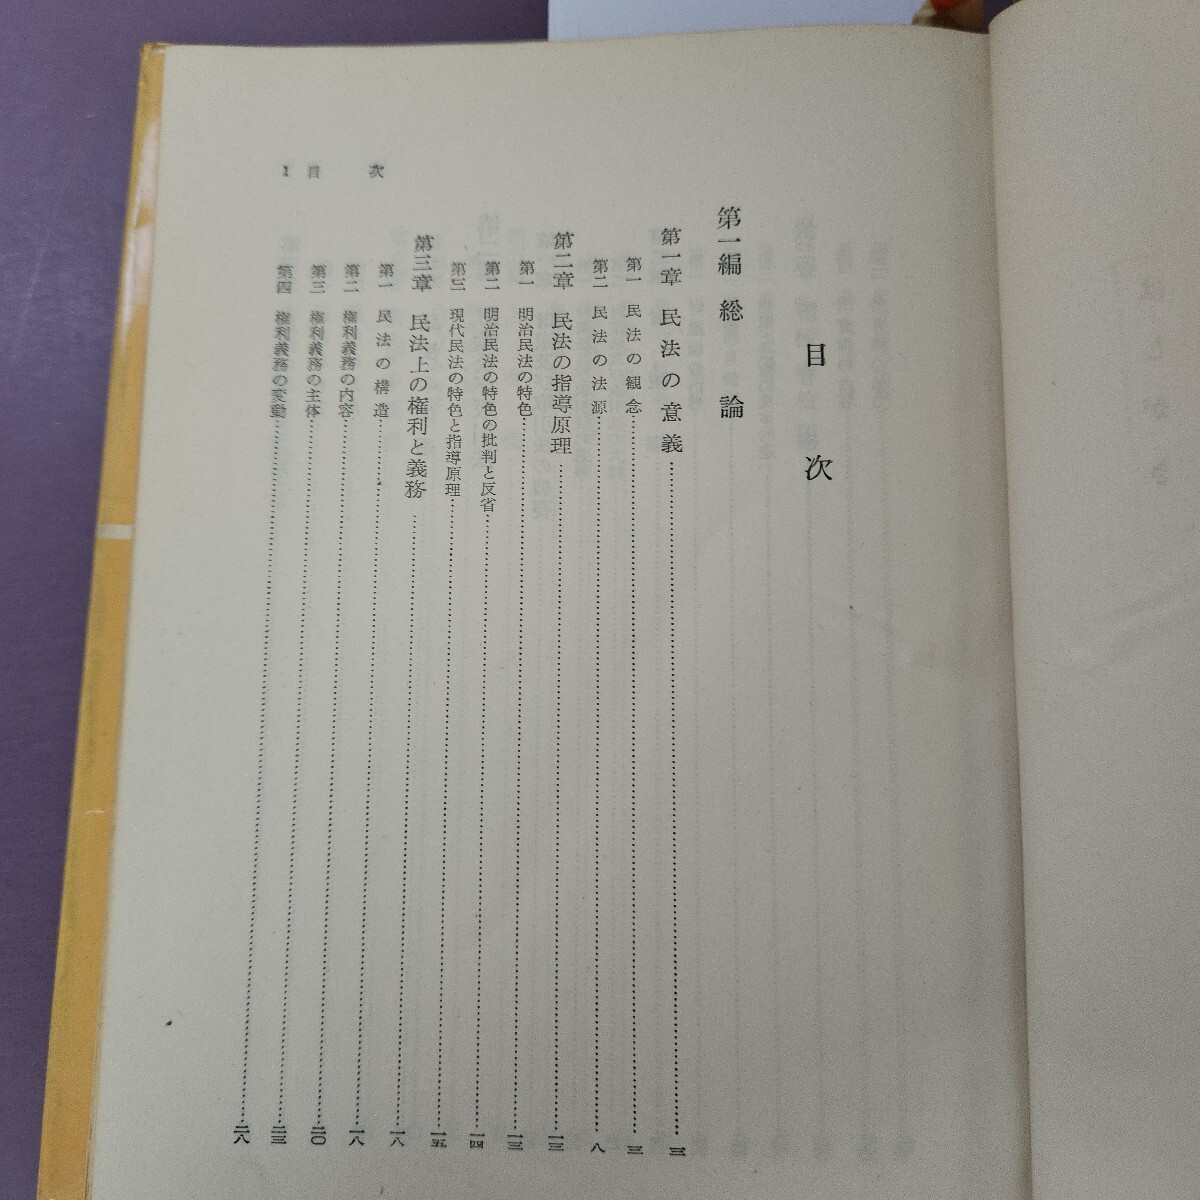 目次
第一編 総論
第一章 民法の意義……三
第一 民法の観念……三
第二 民法の法源……八
第二章 民法の指導原理……一三
第一 明治民法の特色……一三
第二 明治民法の特色の批判と反省……一四
第三 現代民法の特色と指導原理……一五
第三章 民法上の権利と義務……一八
第一 民法の構造……一八
第二 権利義務の内容……二〇
第三 権利義務の主体……二三
第四 権利義務の変動……二八
1 目 次